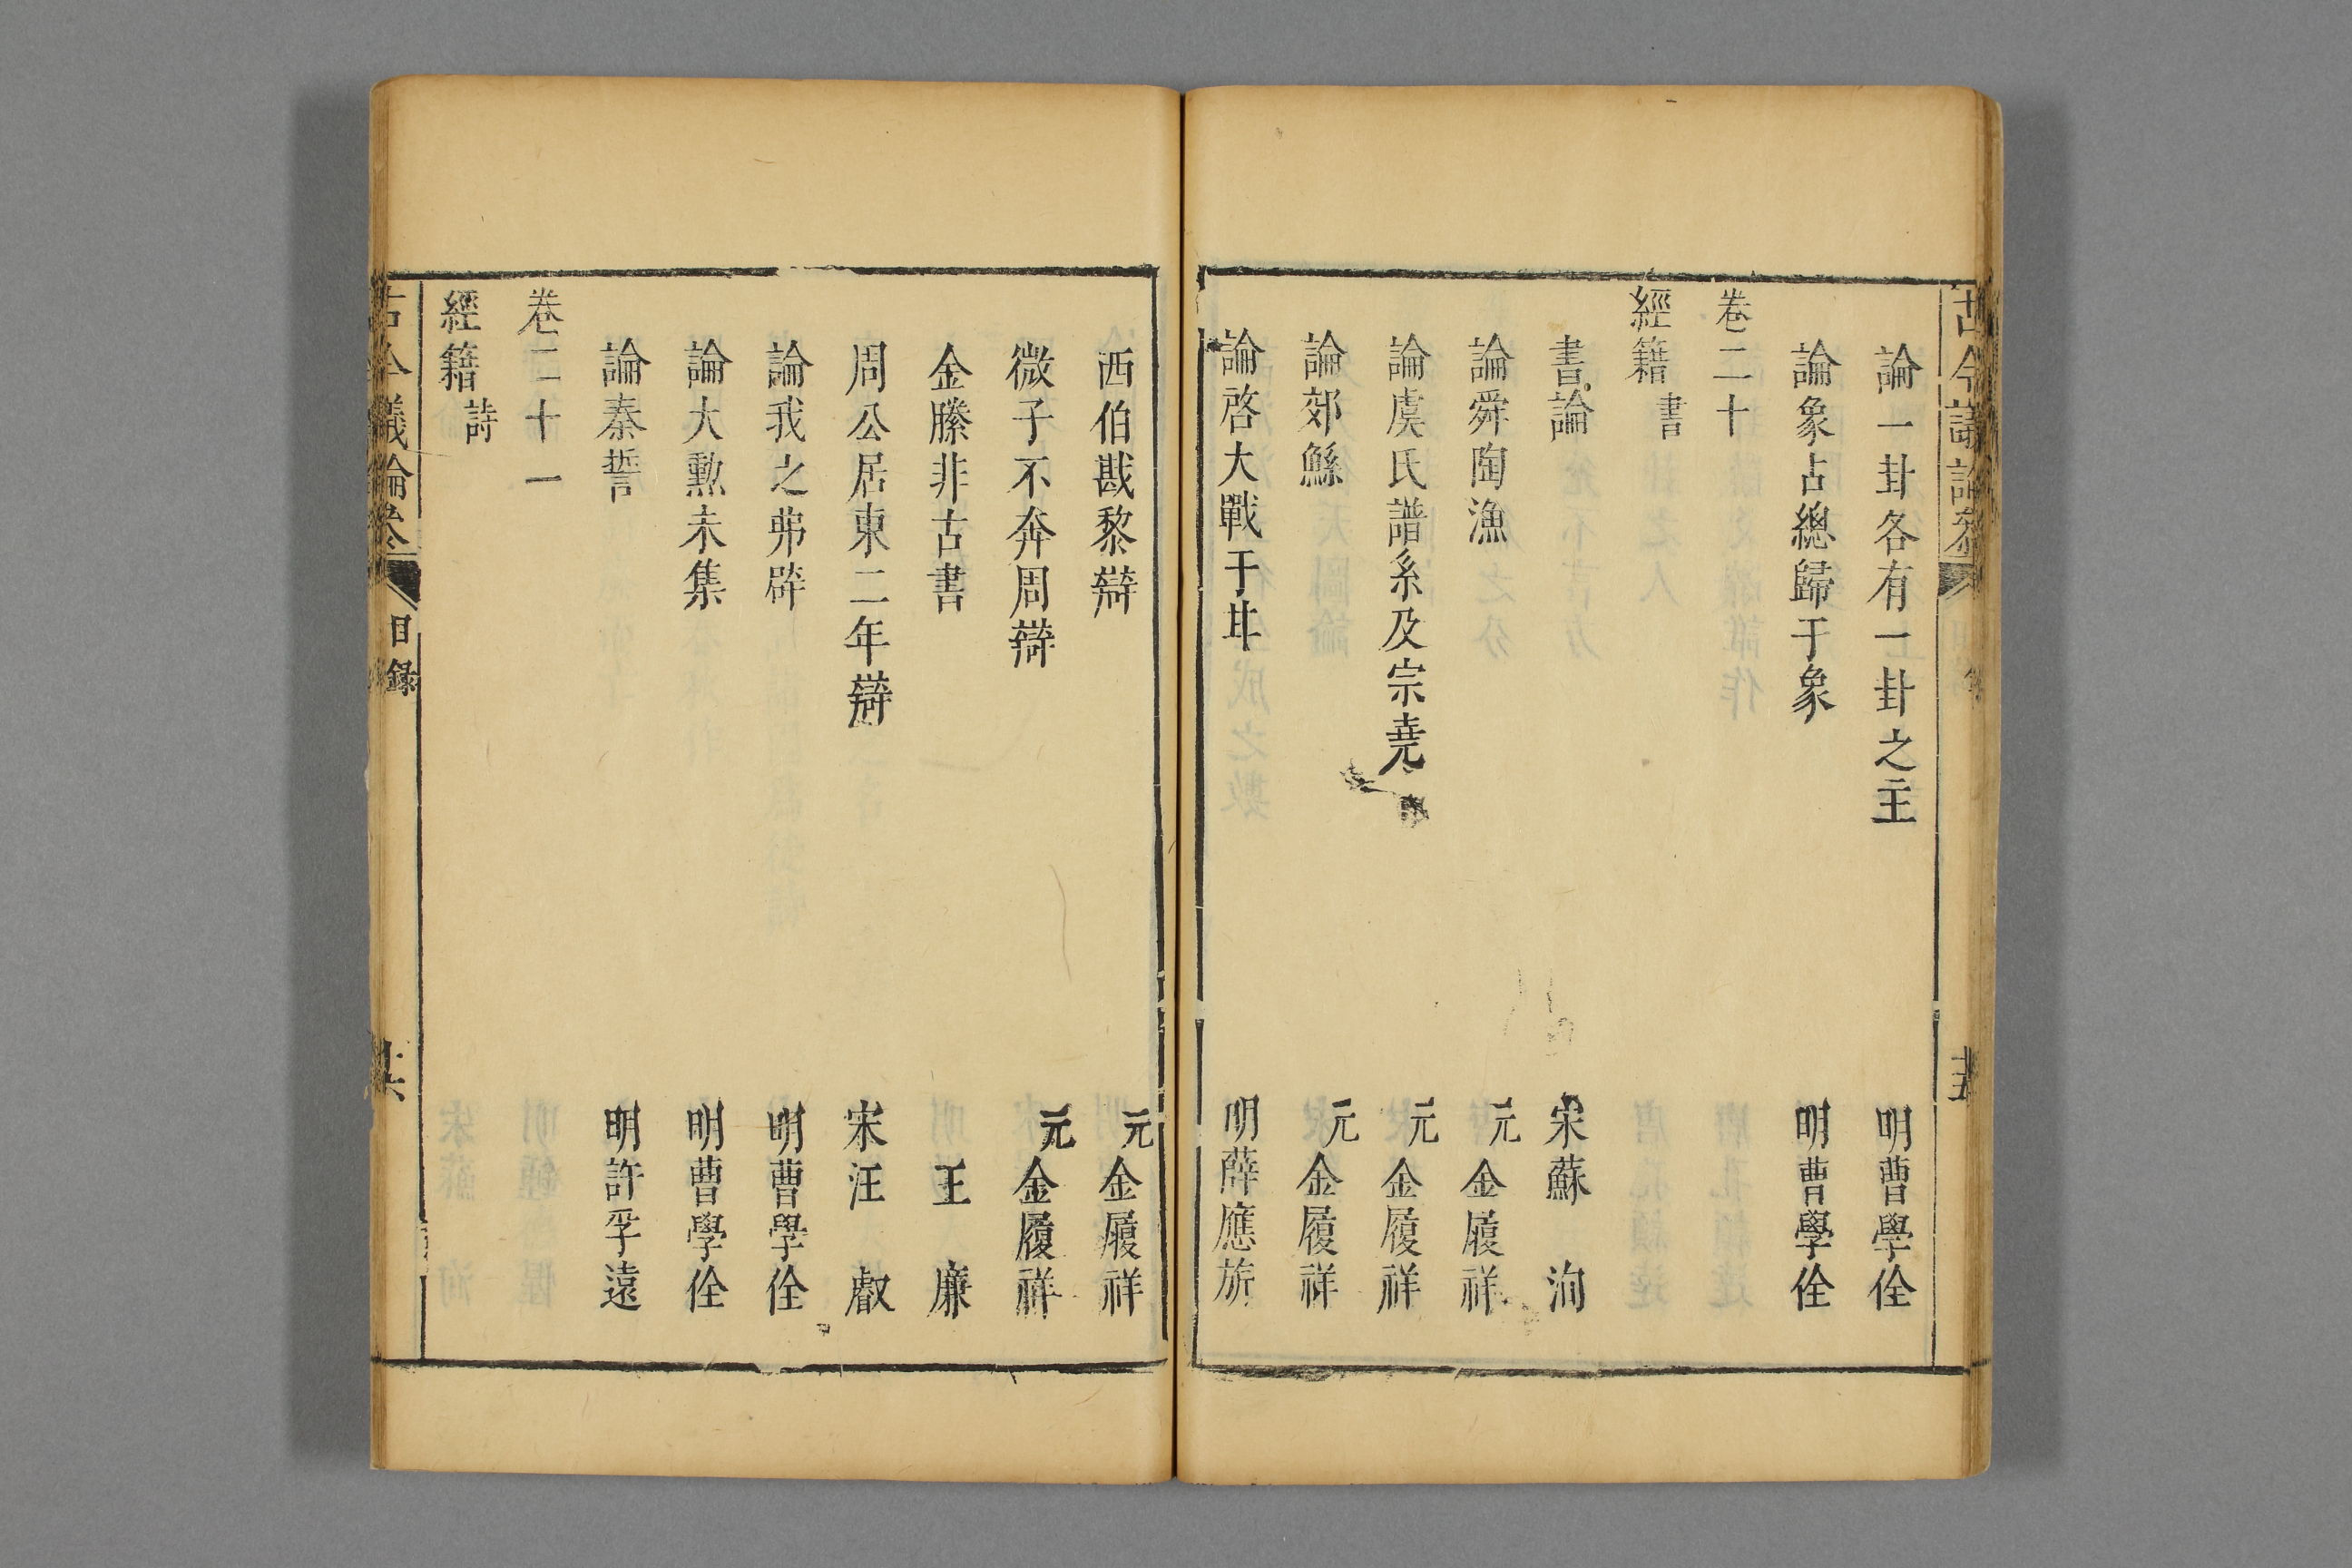 論一卦各有一卦之主 明曹學佺
論象占總歸于象 明曹學佺
卷二十
經籍 書
書論 宋蘇 洵
論舜陶漁 元金履祥
論虞氏譜系及宗堯 元金履祥
論郊鯀 元金履祥
論啓大戰于甘 明薛應旂
西伯戡黎辯 元金履祥
微子不奔周辯 元金履祥
金縢非古書 王 廉
周公居東二年辯 宋汪 叡
論我之弗辟 明曹學佺
論大勲未集 明曹學佺
論秦誓 明許孚遠
卷二十一
經籍 詩
古今議論參 目錄